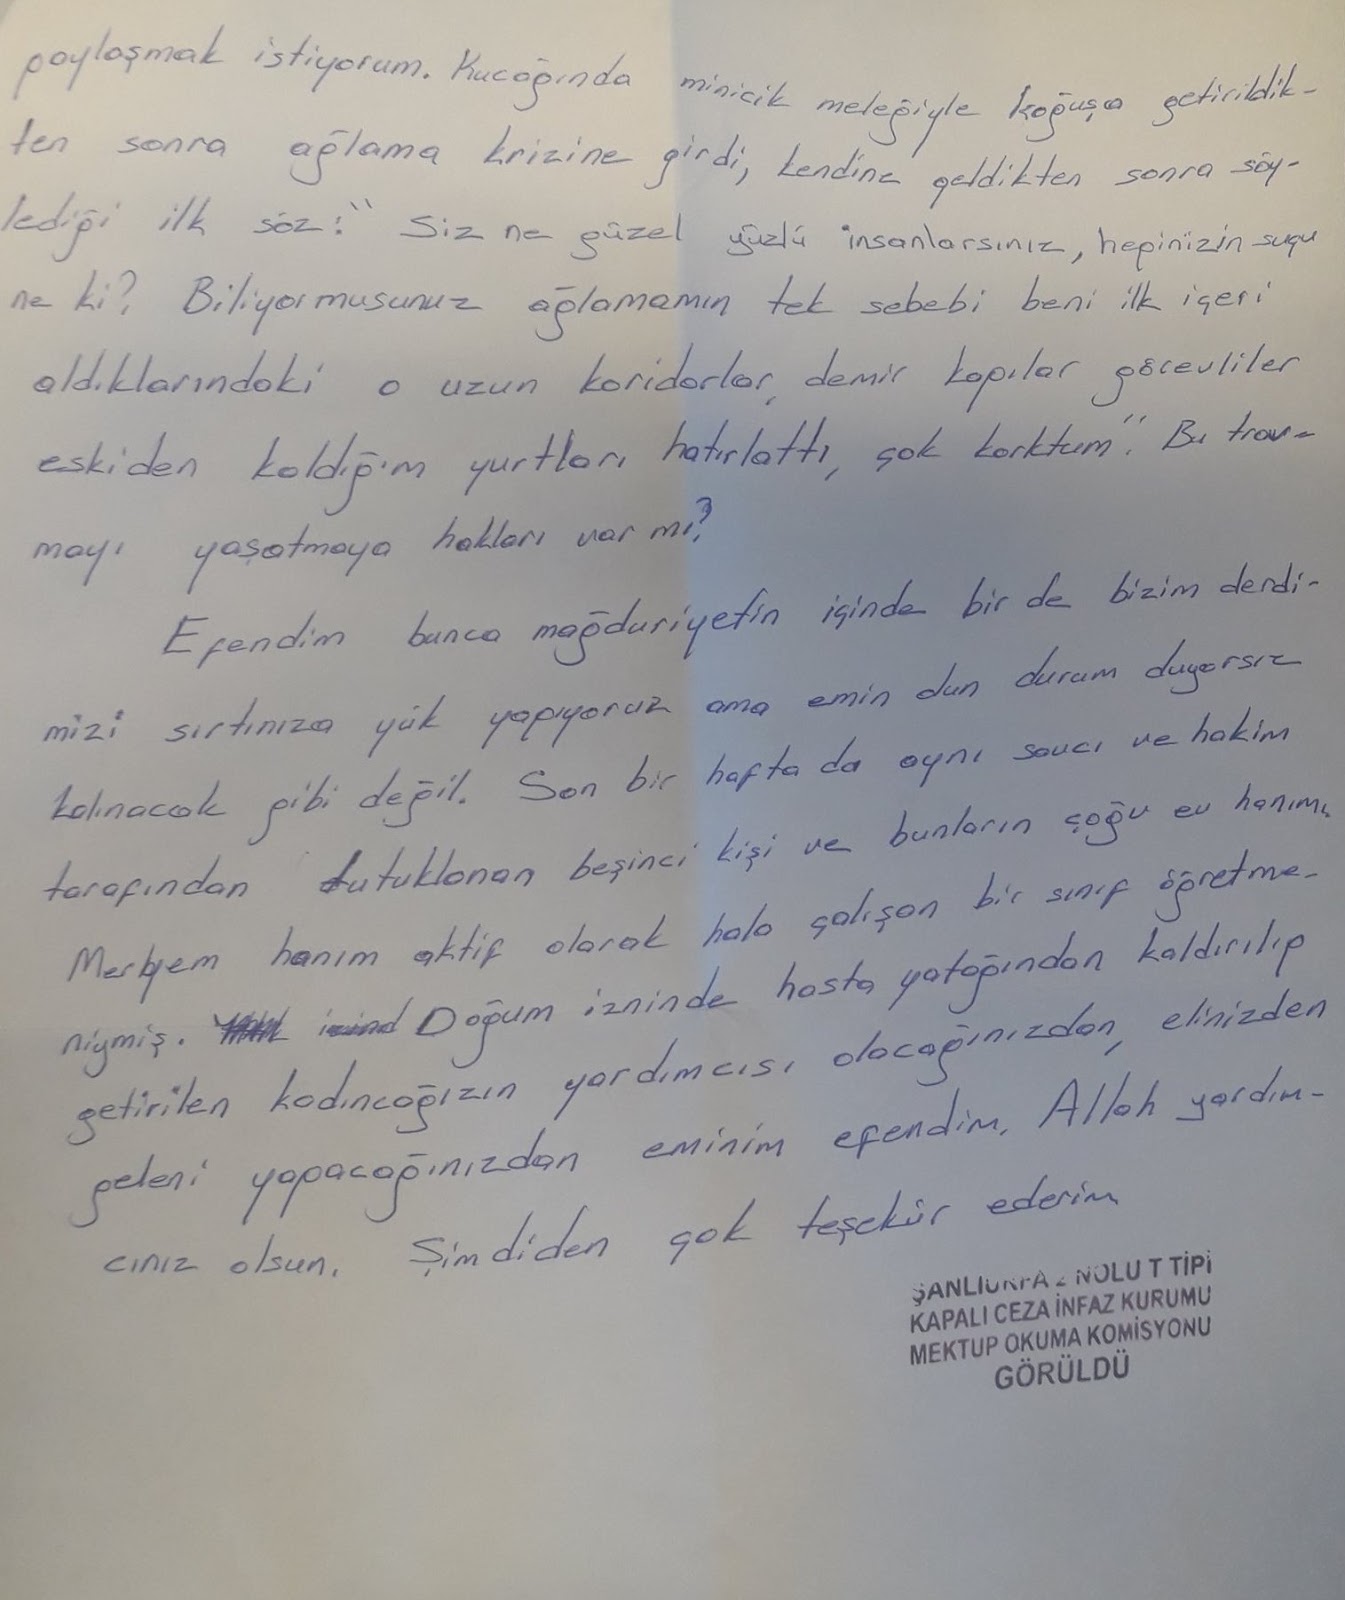 paylaşmak istiyorum. Kucağında minicik meleğiyle koğuşa getirildik-
ten sonra ağlama krizine girdi, kendine geldikten sonra söy-
lediği ilk söz: " Siz ne güzel yüzlü insanlarsınız, hepinizin suçu
ne ki? Biliyormusunuz ağlamamın tek sebebi beni ilk içeri
aldıklarındaki o uzun koridorlar, demir kapılar görevliler
eskiden kaldığım yurtları hatırlattı, çok korktum". Bu trav-
mayı yaşatmaya hakları var mı?
Efendim bunca mağduriyetin içinde bir de bizim derdi-
mizi sırtınıza yük yapıyoruz ama emin olun durum duyarsız
kalınacak gibi değil. Son bir hafta da aynı savcı ve hakim
tarafından tutuklanan beşinci kişi ve bunların çoğu ev hanımı,
Meryem hanım aktif olarak hala çalışan bir sınıf öğretme-
niymiş. Doğum izninde hasta yatağından kaldırılıp
getirilen kadıncağızın yardımcısı olacağınızdan, elinizden
geleni yapacağınızdan eminim efendim. Allah yardım-
cınız olsun. Şimdiden çok teşekür ederim
ŞANLIURFA 2 NOLU T TİPİ
KAPALI CEZA İNFAZ KURUMU
MEKTUP OKUMA KOMİSYONU
GÖRÜLDÜ